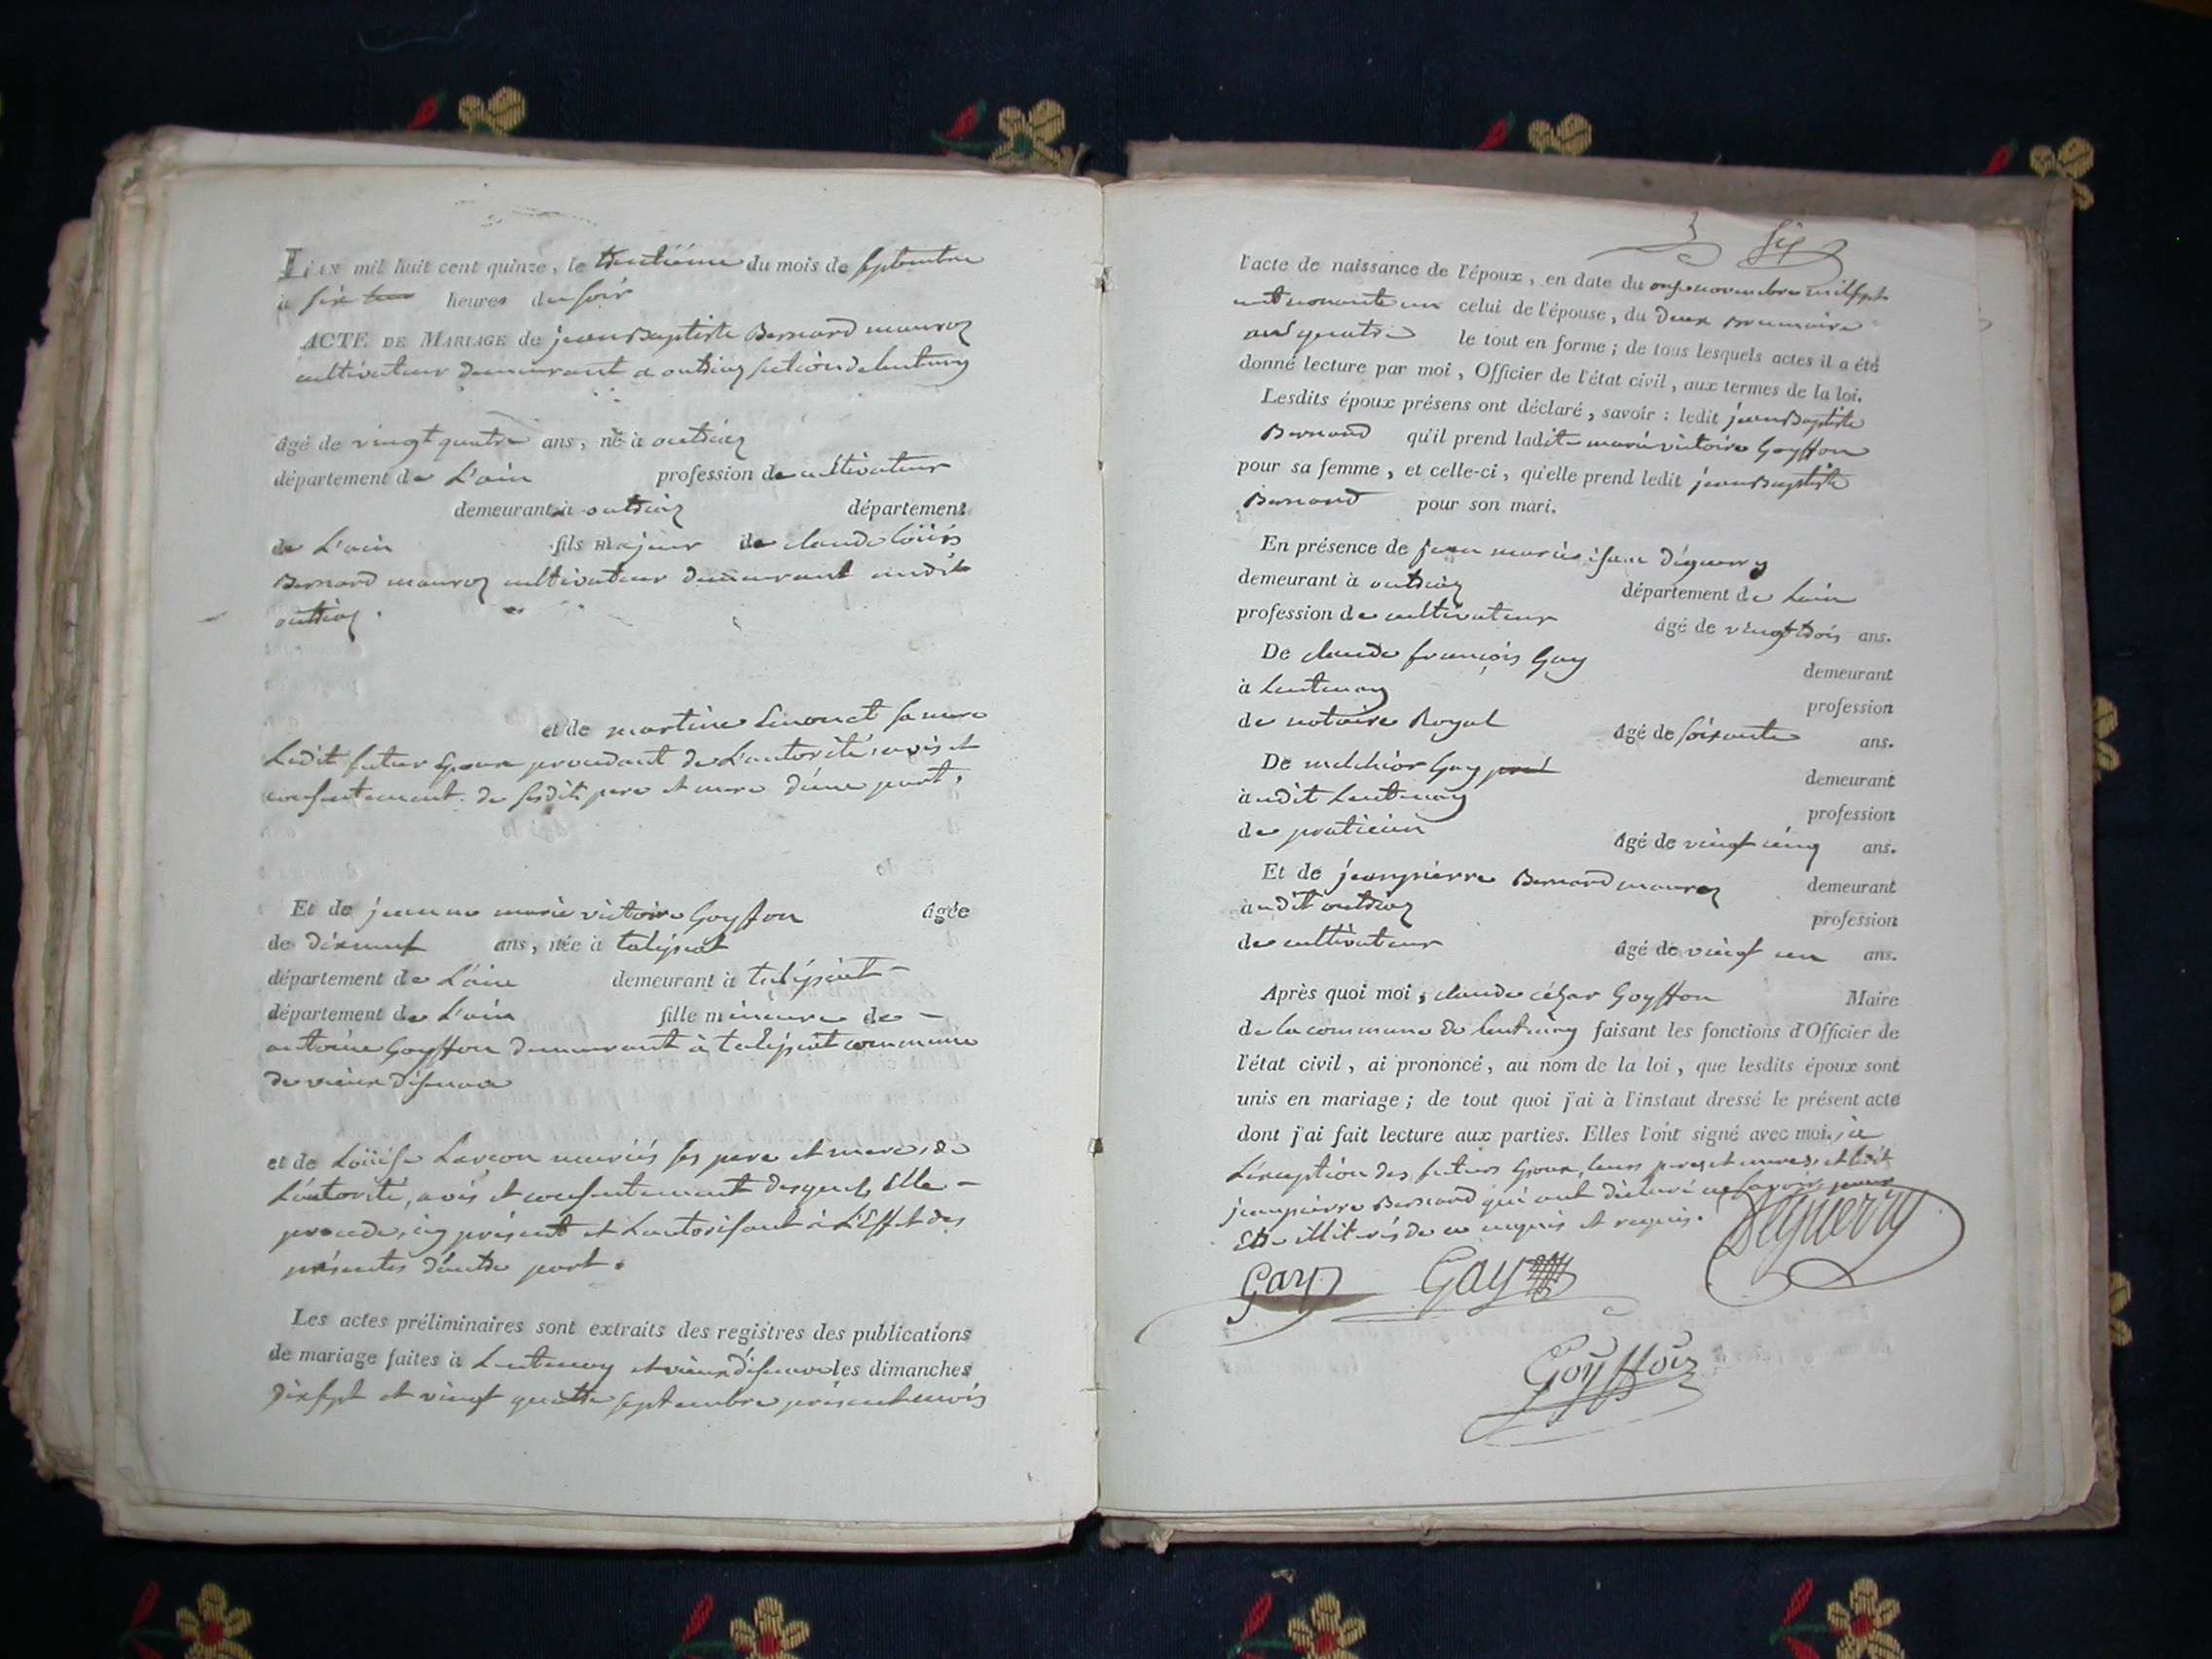 L'AN mil huit cent quinze, le trentième du mois de septembre
à six heures du soir
ACTE DE MARIAGE de jean Baptiste Bernard mauroz
cultivateur demeurant a outriaz section de lentenay
âgé de vingt quatre ans, né à outriaz
département de L'ain profession de cultivateur
demeurant à outriaz département
de L'ain fils majeur de claude Loüis
Bernard mauroz cultivateur demeurant audit
outriaz.
et de martine Simonet sa mere
Ledit futur Epoux procedant de L'autorité, avis et
consentement de sesdits pere et mere d'une part,
Et de jeanne marie victoire Goyffon âgée
de dixneuf ans, née à talipiat
département de L'ain demeurant à talipiat
département de L'ain fille mineure de
antoine Goyffon demeurant à talipiat commune
de vieux d'isenave
et de Loüise mariés ses pere et mere, de
L'autorité, avis et consentement desquels Elle
procede, icy présent et L'autorisant à L'Effet des
présentes d'autre part.
Les actes préliminaires sont extraits des registres des publications
de mariage faites à Lentenay et vieux d'isenave les dimanches
dixsept et vingt quatre septembre présent mois
six
l'acte de naissance de l'époux, en date du onze novembre mil sept
cent nonante un celui de l'épouse, du deux Brumaire
an quatre le tout en forme; de tous lesquels actes il a été
donné lecture par moi, Officier de l'état civil, aux termes de la loi.
Lesdits époux présens ont déclaré, savoir: ledit jean Baptiste
Bernard qu'il prend ladite marie victoire Goyffon
pour sa femme, et celle-ci, qu'elle prend ledit jean Baptiste
Bernard pour son mari.
En présence de jean marie déguerry
demeurant à outriaz département de Lain
profession de cultivateur âgé de vingt trois ans.
De claude françois Gay demeurant
à Lentenay profession
de notaire Royal âgé de soixante ans.
De melchior Gay demeurant
audit Lentenay profession
de praticien âgé de vingt cinq ans.
Et de jeanpierre Bernard mauroz demeurant
audit outriaz profession
de cultivateur âgé de vingt un ans.
Après quoi moi, claude cézar Goyffon Maire
de la commune de lentenay faisant les fonctions d'Officier de
l'état civil, ai prononcé, au nom de la loi, que lesdits époux sont
unis en mariage; de tout quoi j'ai à l'instant dressé le présent acte
dont j'ai fait lecture aux parties. Elles l'ont signé avec moi, à
L'exception des futurs Epoux, leurs peres et meres, et ledit
jeanpierre Bernard qui ont déclaré ne savoir
Etre illitérés de ce enquis et requis. Déguerry
Gay Gay
Goyffon